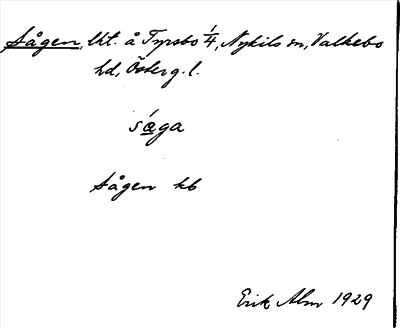 Sågen, lht. å Tyrsbo 1/4, Nykils sn, Valkebo
hd, Österg. l.
sǻga
Sågen kb
Erik Alm 1929